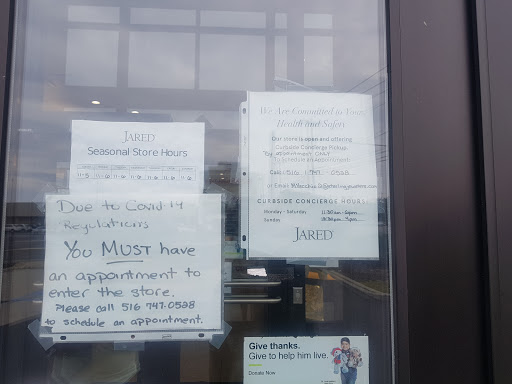 JARED
Seasonal Store Hours
Due to Covid 19
Regulations
You MUST have
an appointment to
enter the store.
Please call 516 747-0528
to schedule an appointment.
We Are Committed to Your
Health and Safety
Our store is open and offering
Curbside Concierge Pickup
By appointment ONLY
To Schedule an Appointment
Call: 516 747 0528
or Email
CURBSIDE CONCIERGE HOURS:
Monday - Saturday
Sunday
JARED
Give thanks.
Give to help him live.
Donate Now